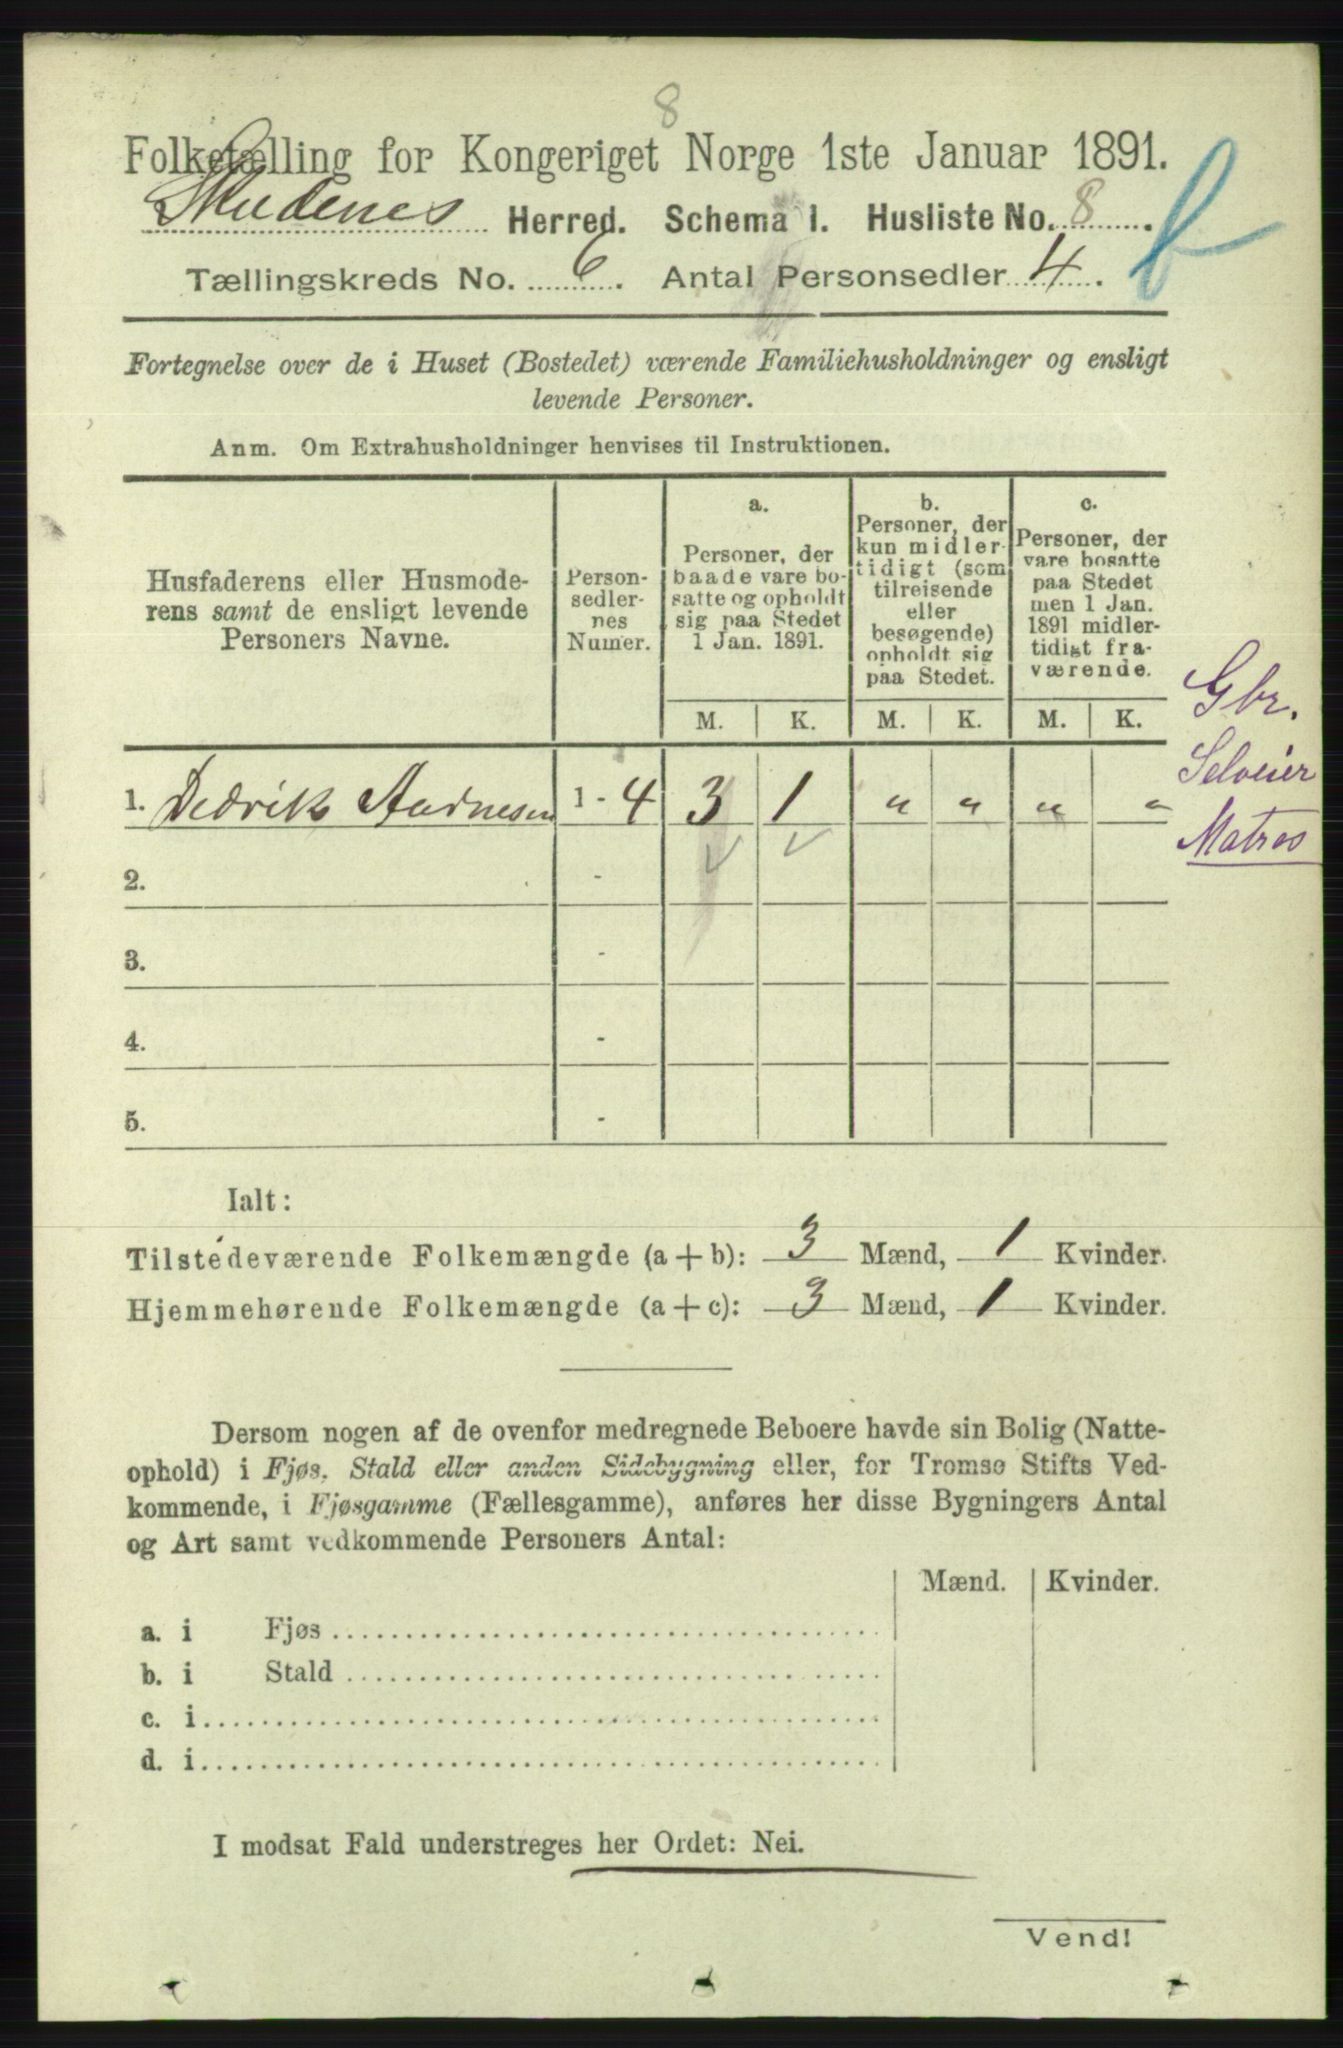 8
Folketælling for Kongeriget Norge 1ste Januar 1891.
Skudenes Herred. Schema 1. Husliste No. 8.
Tællingskreds No. 6. Antal Personsedler 4.
b
Fortegnelse over de i Huset (Bostedet) værende Familiehusholdninger og ensligt
levende Personer.
Anm. Om Extrahusholdninger henvises til Instruktionen.
Husfaderens eller Husmode-
rens samt de ensligt levende
Personers Navne.
Person-
sedler-
nes
Numer.
a.
Personer, der
baade vare bo-
satte og opholdt
sig paa Stedet
1 Jan. 1891.
b.
Personer, der
kun midler-
tidigt (som
tilreisende
eller
besøgende)
opholdt sig
paa Stedet.
c.
Personer, der
vare bosatte
paa Stedet
men 1 Jan.
1891 midler-
tidigt fra-
værende.
M. K. M. K. M. K.
Gbr.
Selveier
Matros
1. Dedrik Aadnesen 1 - 4 3 1 " " " "
2. -
3. -
4. -
5. -
Ialt:
Tilstedeværende Folkemængde (a + b): 3 Mænd, 1 Kvinder.
Hjemmehørende Folkemængde (a + c): 3 Mænd, 1 Kvinder.
Dersom nogen af de ovenfor medregnede Beboere havde sin Bolig (Natte-
ophold) i Fjøs, Stald eller anden Sidebygning eller, for Tromsø Stifts Ved-
kommende, i Fjøsgamme (Fællesgamme), anføres her disse Bygningers Antal
og Art samt vedkommende Personers Antal:
Mænd. Kvinder.
a. i Fjøs
b. i Stald
c. i
d. i
I modsat Fald understreges her Ordet: Nei.
Vend!